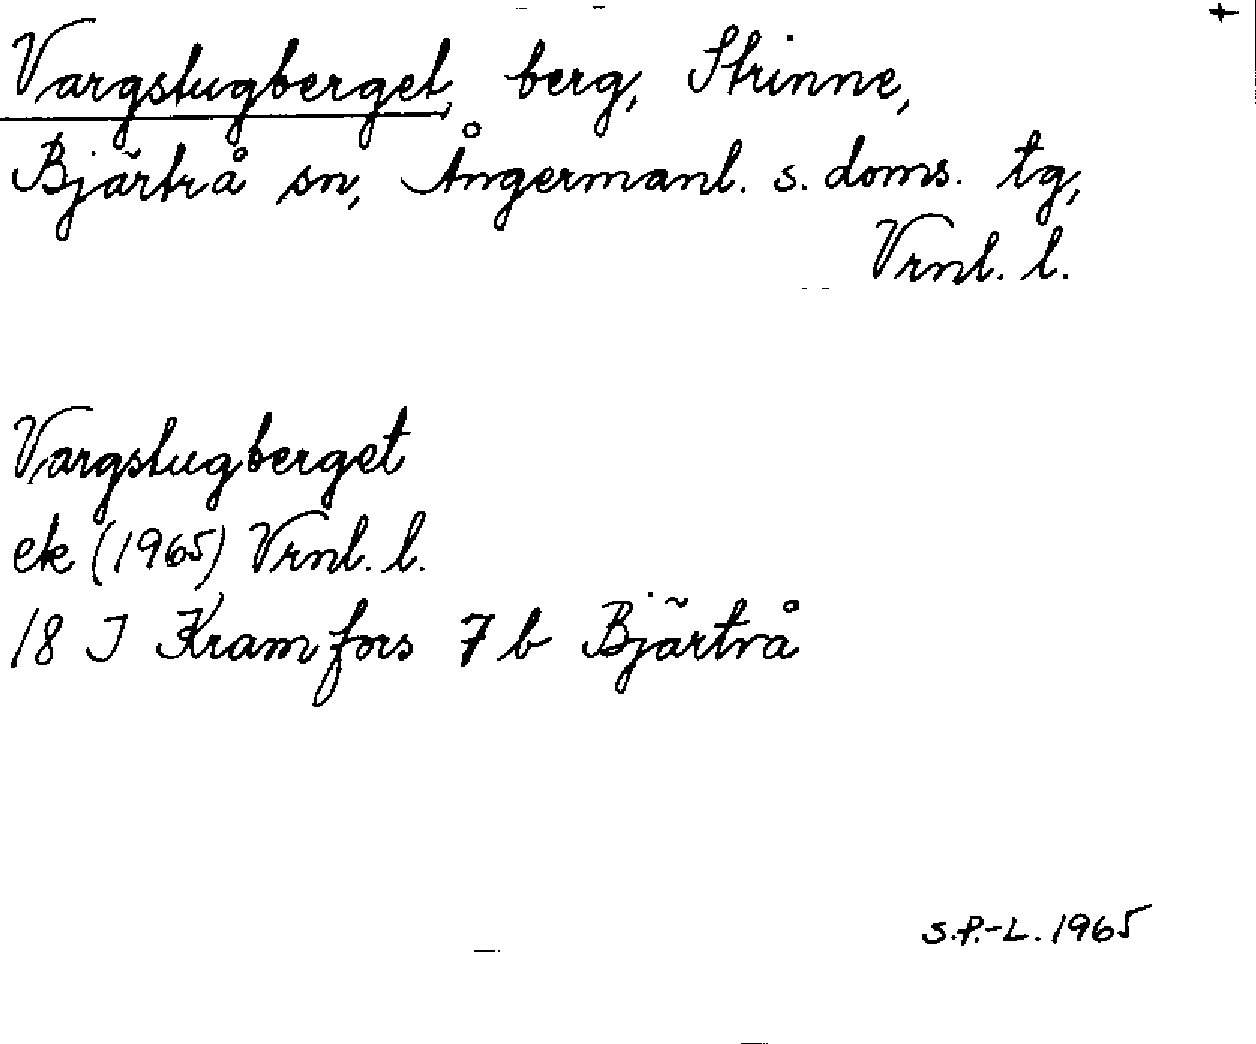 Vargstugberget, berg, Strinne,
Bjärtrå sn, Ångermanl. s. doms. tg,
Vrnl. l.
Vargstugberget
ek (1965) Vrnl. l.
18 J Kramfors 7 b Bjärtrå
S.P.-L. 1965